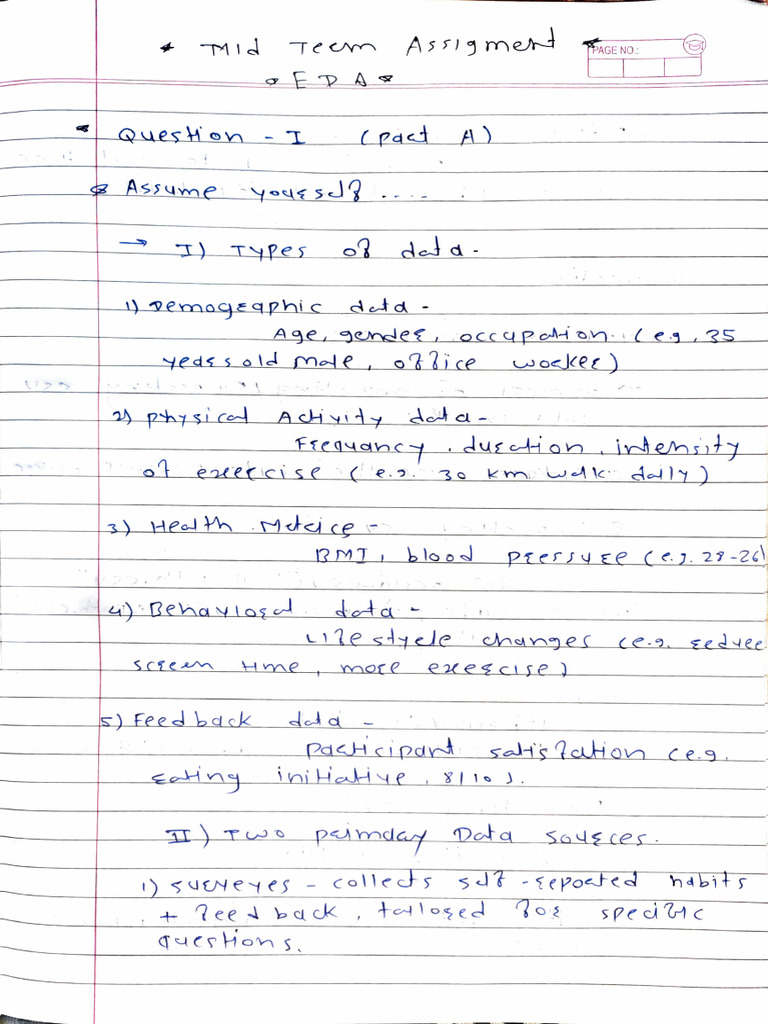 * Mid Term Assigment *
PAGE NO.:
* EDA *
* Question - I (part A)
* Assume yourself ....
→ I) Types of data -
1) Demographic data -
Age, gender, occupation. (e.g, 35
years old male, office worker)
2) Physical Activity data -
Frequancy, duration, intensity
of exercise (e.g. 30 km walk daily)
3) Health Metrice -
BMI, blood pressure (e.g. 28-26)
4) Behavioral data -
Life style changes (e.g. reduce
screen time, more exercise)
5) Feedback data -
participant satisfation (e.g.
eating initiative, 8/10).
II) Two primday Data sources.
1) surveyes - collects self-reported habits
+ feedback, tailored for specific
questions.